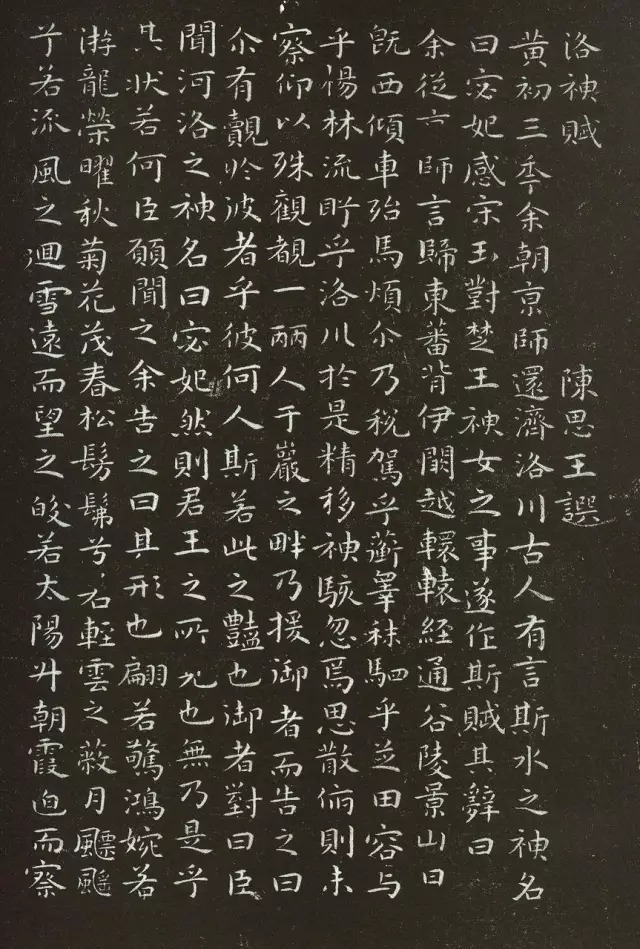 洛神賦 陳思王譔
黄初三年余朝京師還濟洛川古人有言斯水之神名
曰宓妃感宋玉對楚王神女之事遂作斯賦其辭曰
余從京師言歸東蕃背伊闕越轘轅經通谷陵景山日
既西傾車殆馬煩尒乃税駕乎蘅皋秣駟乎芝田容与
乎楊林流眄乎洛川於是精移神駭忽焉思散俯則未
察仰以殊觀覩一麗人于巖之畔乃援御者而告之曰
尒有覿於彼者乎彼何人斯若此之豔也御者對曰臣
聞河洛之神名曰宓妃然則君王之所見也無乃是乎
其状若何臣願聞之余告之曰其形也翩若驚鴻婉若
游龍榮曜秋菊花茂春松髣髴兮若輕雲之蔽月飄颻
兮若流風之迴雪遠而望之皎若太陽升朝霞迫而察